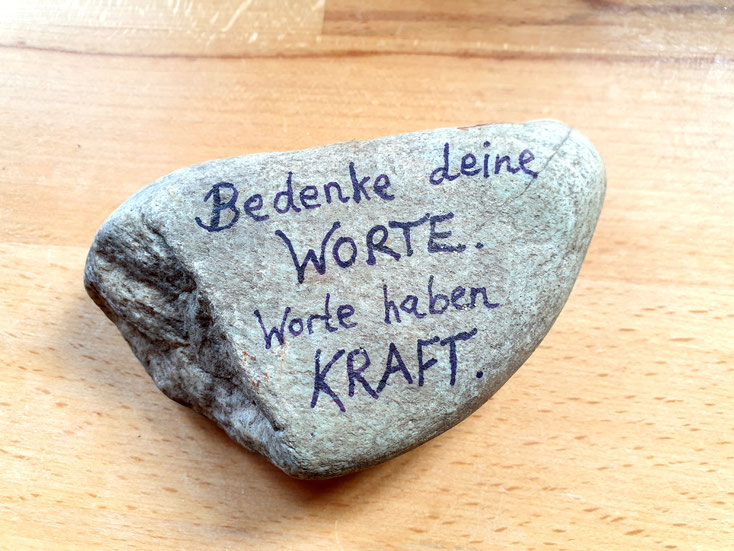 Bedenke deine
WORTE.
Worte haben
KRAFT.